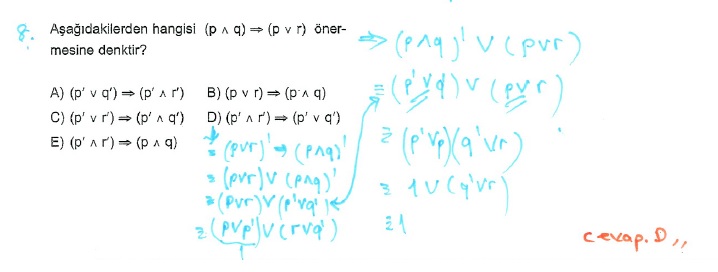 8. Aşağıdakilerden hangisi (p ∧ q) ⇒ (p ∨ r) öner-
mesine denktir?
A) (p′ ∨ q′) ⇒ (p′ ∧ r′) B) (p ∨ r) ⇒ (p ∧ q)
C) (p′ ∨ r′) ⇒ (p′ ∧ q′) D) (p′ ∧ r′) ⇒ (p′ ∨ q′)
E) (p′ ∧ r′) ⇒ (p ∧ q)
≡ (p∨r)′ → (p∧q)′
≡ (p∨r) ∨ (p∧q)′
≡ (p∨r) ∨ (p′∨q′)
≡ (p∨p′) ∨ (r∨q′)
1
⇒ (p∧q)′ ∨ (p∨r)
≡ (p′∨q′) ∨ (p∨r)
≡ (p′∨p)(q′∨r)
≡ 1∨(q′∨r)
≡1
cevap. D,,